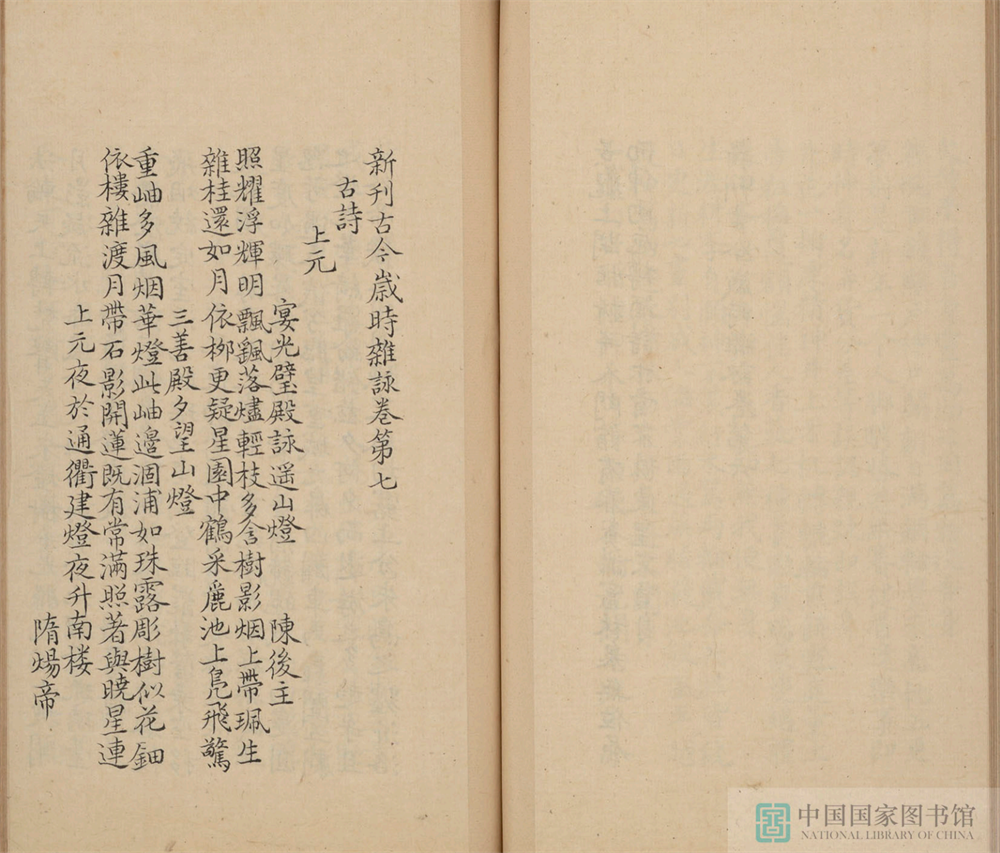 新刊古今歲時雜詠卷第七
古詩
上元
宴光璧殿詠遥山燈 陳後主
照耀浮輝明飄颻落燼輕枝多含樹影烟上帶珮生
雜桂還如月依柳更疑星園中鶴采麗池上鳧飛驚
三善殿夕望山燈
重岫多風烟華燈此岫邊涸浦如珠露彫樹似花鈿
依樓雜渡月帶石影開蓮既有常滿照著與曉星連
上元夜於通衢建燈夜升南楼
隋煬帝
中国国家图书馆
NATIONAL LIBRARY OF CHINA